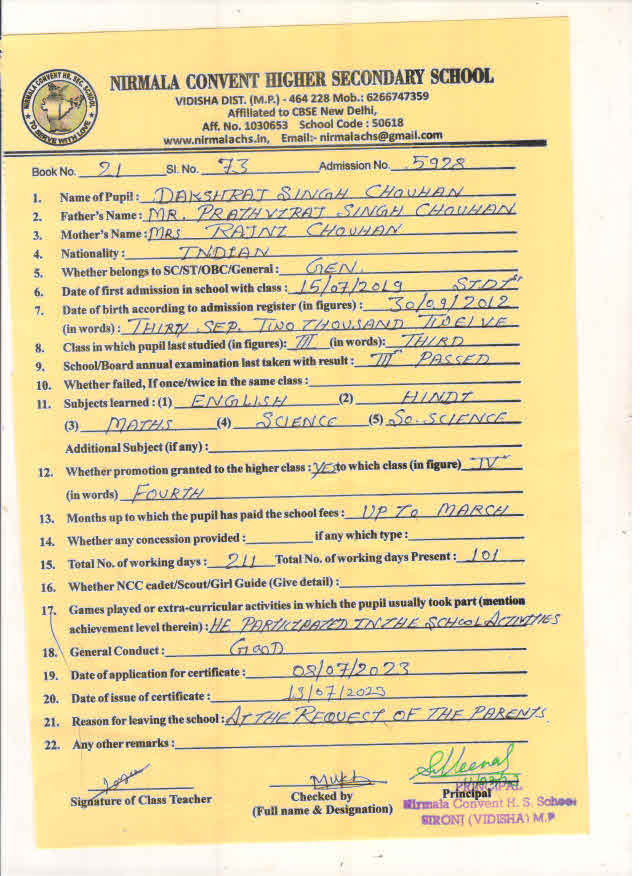 NIRMALA CONVENT HR. SEC. SCHOOL
TO SERVE WITH LOVE
NIRMALA CONVENT HIGHER SECONDARY SCHOOL
VIDISHA DIST. (M.P.) - 464 228 Mob.: 6266747359
Affiliated to CBSE New Delhi,
Aff. No. 1030653 School Code : 50618
www.nirmalachs.in, Email:- nirmalachs@gmail.com
Book No. 21 Sl. No. 73 Admission No. 5928
1. Name of Pupil : DAKSHRAJ SINGH CHOUHAN
2. Father's Name : MR. PRATHVIRAJ SINGH CHOUHAN
3. Mother's Name : MRS RAJNI CHOUHAN
4. Nationality : INDIAN
5. Whether belongs to SC/ST/OBC/General : GEN.
6. Date of first admission in school with class : 15/07/2019 STD I st
7. Date of birth according to admission register (in figures) : 30/09/2012
(in words) : THIRTY SEP. TWO THOUSAND TWELVE
8. Class in which pupil last studied (in figures): III (in words): THIRD
9. School/Board annual examination last taken with result : III PASSED
10. Whether failed, If once/twice in the same class :
11. Subjects learned : (1) ENGLISH (2) HINDI
(3) MATHS (4) SCIENCE (5) SO. SCIENCE
Additional Subject (if any) :
12. Whether promotion granted to the higher class : YES to which class (in figure) IV
(in words) FOURTH
13. Months up to which the pupil has paid the school fees : UP TO MARCH
14. Whether any concession provided : if any which type :
15. Total No. of working days : 211 Total No. of working days Present : 101
16. Whether NCC cadet/Scout/Girl Guide (Give detail) :
17. Games played or extra-curricular activities in which the pupil usually took part (mention
achievement level therein) : HE PARTICIPATED IN THE SCHOOL ACTIVITIES
18. General Conduct : GOOD
19. Date of application for certificate : 08/07/2023
20. Date of issue of certificate : 13/07/2023
21. Reason for leaving the school : AT THE REQUEST OF THE PARENTS.
22. Any other remarks :
Signature of Class Teacher
Checked by
(Full name & Designation)
Principal
PRINCIPAL
Nirmala Convent H. S. School
SIRONJ (VIDISHA) M.P